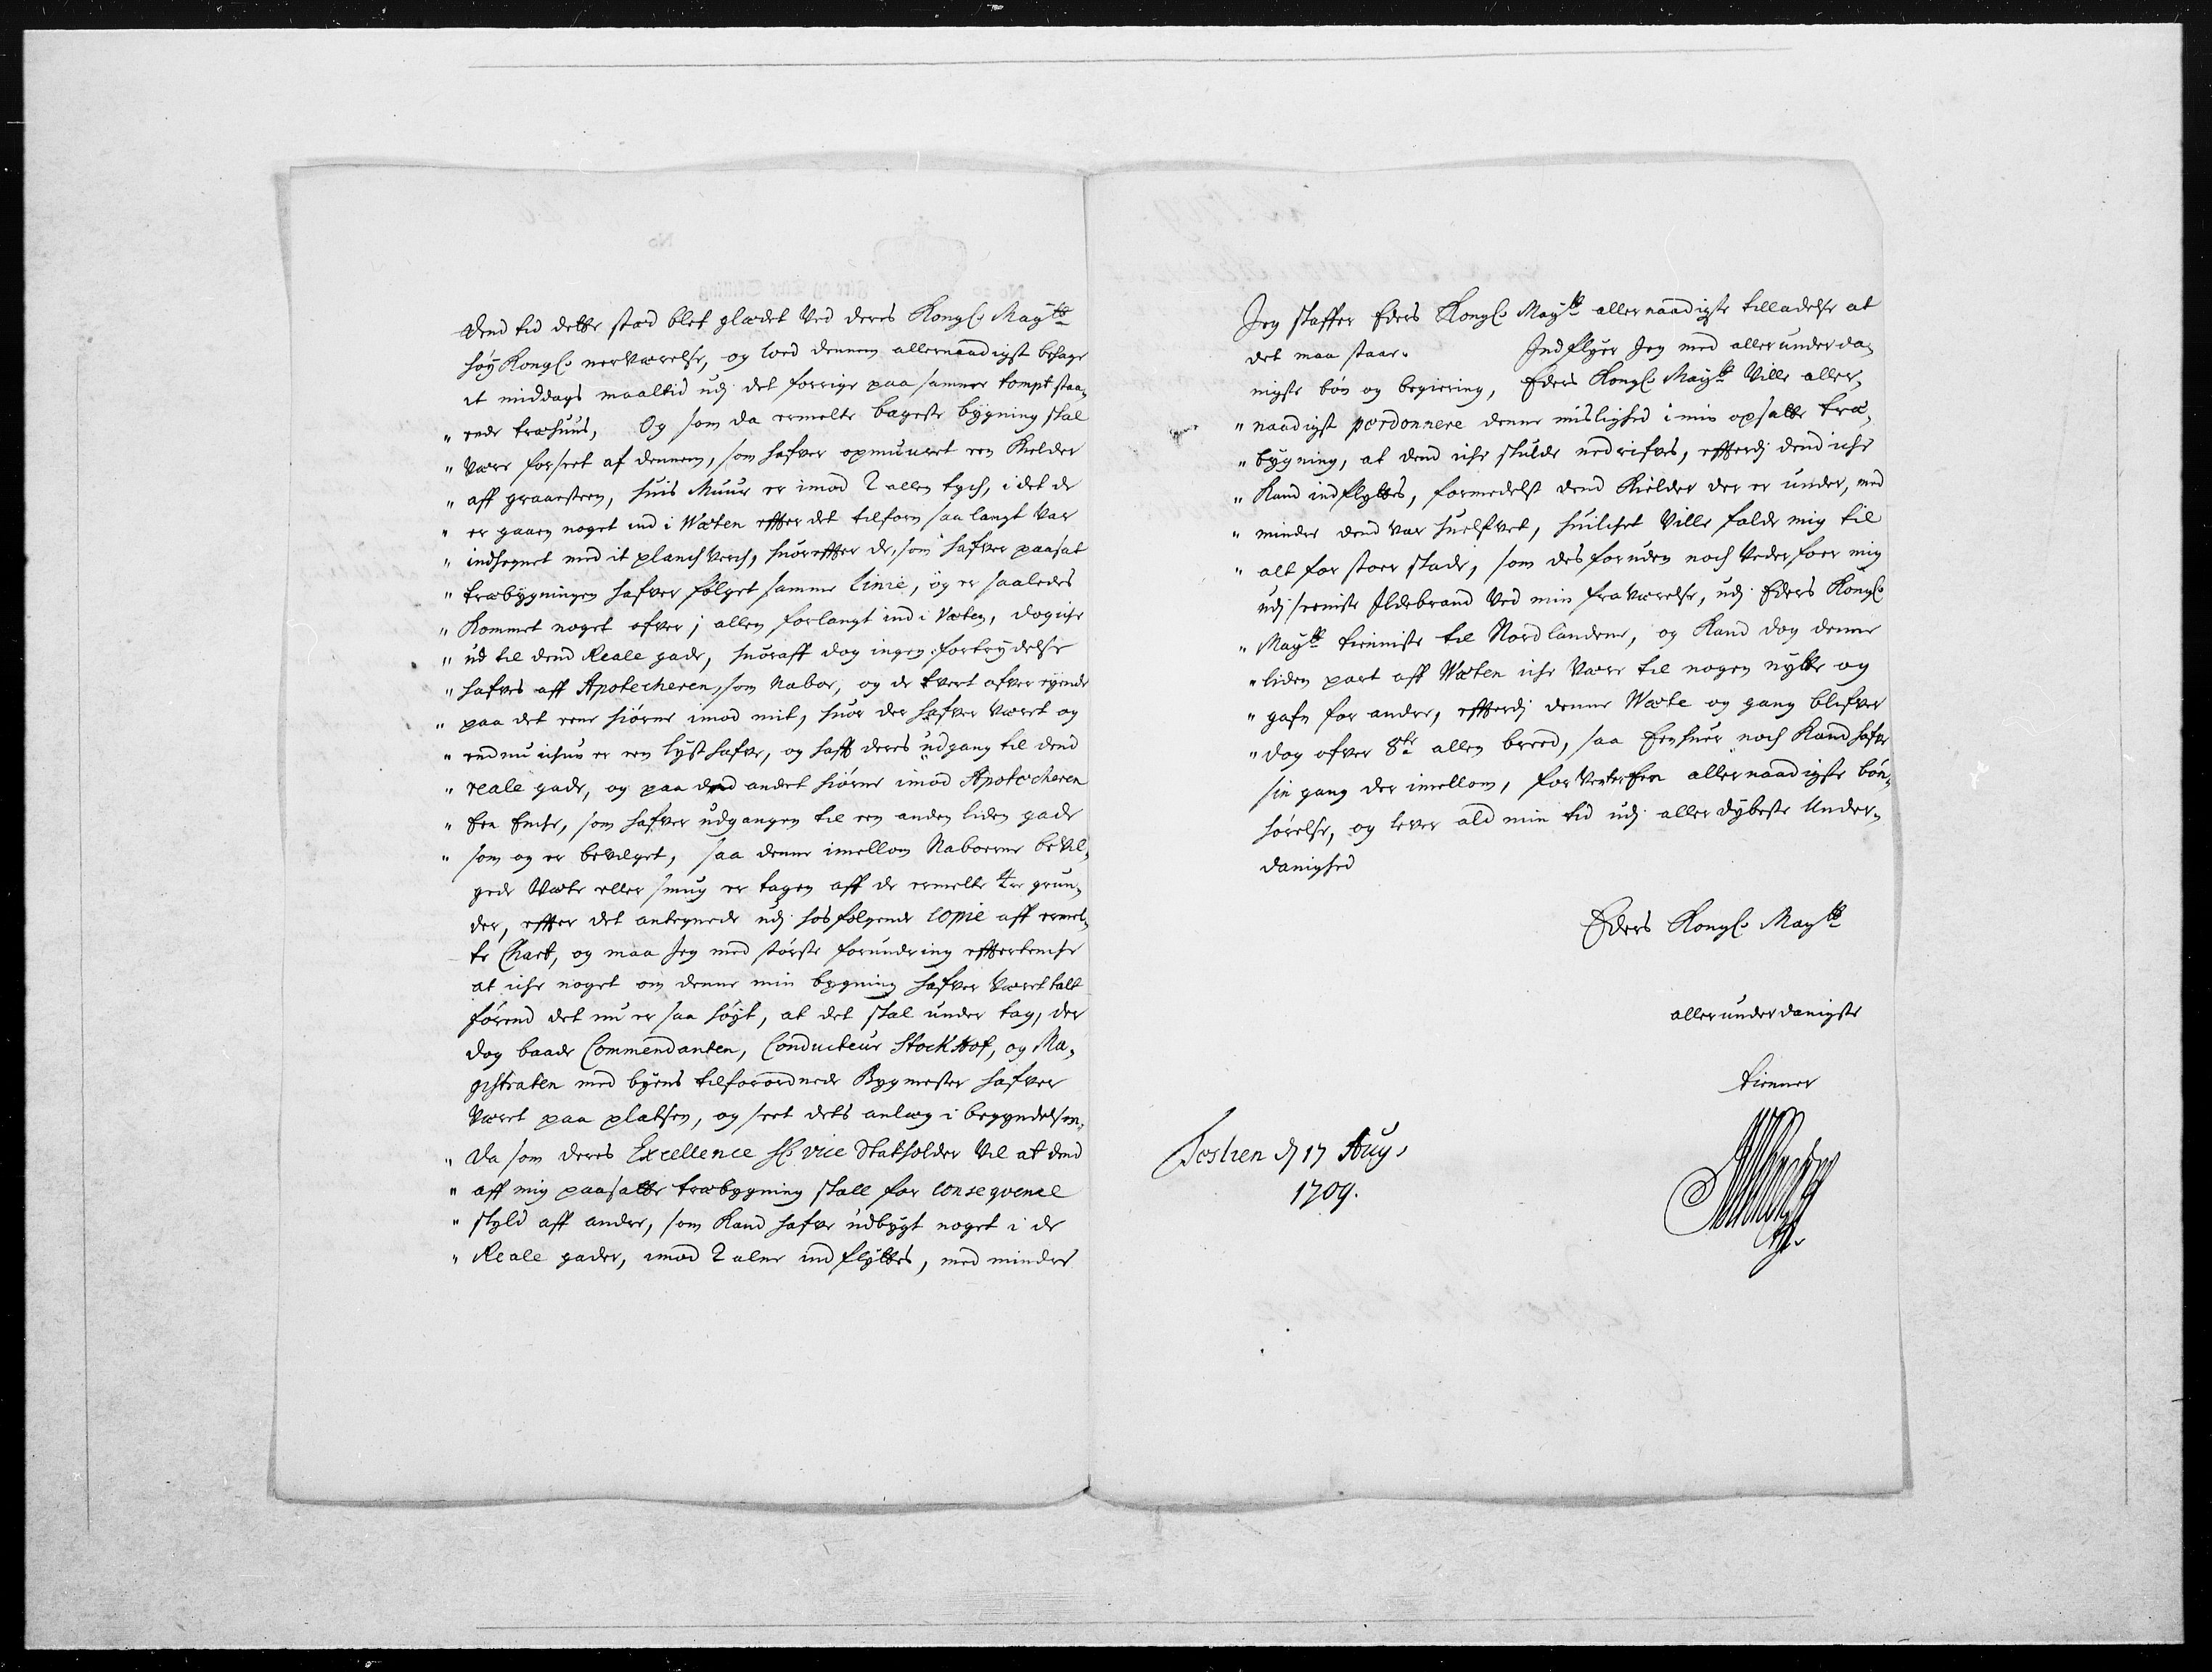 dend tid dette stæd blef glædet Ved deres Kongl: Maytts
høy Kongl: nerværelse, og loed dennem allernaadigst behage
et middags maaltid udj det forrige paa samme tompt staa,
" ende træhuus, Og som da ermelte bageste bygning skal
" være forseet af dennem, som hafver opmuuret een Kielder
" aff graaesteen, huis Muur er imod 2 allen tych, i det de
" er gaaen noget ind i Wæten effter det tilforn saa langt var
" indhegnet med it planchverch, huoreffter de, som hafver paasat
" træbygningen hafver følget samme Linie, og er saaledes
" Kommet noget ofver j allen forlangt ind i Væten, dog iche
" ud til dend Reale gade, huoraff dog ingen fortrydelse
" hafves aff Apotecheren, som Nabor, og de tvert ofver eyende
" paa det eene hiørne imod mit, huor der hafver været og
" endnu ichun er een lysthafve, og haff deres udgang til dend
" reale gade, og paa dend andet hiørne imod Apotecheren
" Een Enche, som hafver udgangen til een anden liden gade
" som og er bevilget, saa denne imellom Naboerne bevil,
gede Væte eller smug er tagen aff de ermelte 4re grun,
der, effter det antegnede udj hosfølgende Copie aff ermel,
te Chart, og maa Jeg med største forundring effterteniche
at iche noget om denne min bygning hafver været talt
førend det nu er saa høyt, at det skal under tag, der
dog baade Commendanten, Conducteur Stockhof, og Ma,
gistraten med byens tilforordnede Bygmester hafver
været paa platsen, og seet dets anlæg i begyndelsen,
" Da som deres Excellence H: vice Statholder Vil at dend
" aff mig paasatte træbygning skall for consequence
" skyld aff andre, som Kand hafve udbygt noget i de
" Reale gader, imod 2 alne ind flyttes, med mindre
Jeg skaffer Eders Kongl: Maytts allernaadigste tilladelse at
det maa staae. Indflyer Jeg med allerunderda,
nigste bøn og begiering, Eders Kongl: Maytt Ville aller,
" naadigst pordonnere denne mislighed i min opsatte træ,
" bygning, at dend iche skulde nedrifves, effterdj dend iche
" Kand indflyttes, formedelst dend Kielder der er under, med
" minder dend var huelfvet, huilchet Ville falde mig til
" alt for stoer skade, som des foruden noch Vederfoer mig
udj seeniste Ildebrand Ved min fraværelse, udj Eders Kongl:
" Maytts tienniste til Nordlandene, og Kand dog denne
" liden part aff Wæten iche være til nogen nytte og
" gafn for andre, effterdj denne Wæte og gang blifver
" dog ofver 8te allen breed, saa Eenhuer noch Kand hafve
sin gang der imellom, forventer Een allernaadigste bøn,
hørelse, og lever ald min tid udj allerdybeste Under,
danighed
Eders Kongl: Maytts
allerunderdanigste
tienner
17 Aug:
1709.